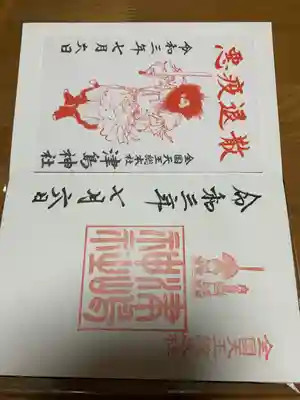 悪疫退散
全国天王総本社
津島神社
令和三年七月六日
全国天王総本社
津島
神社
令和三年七月六日